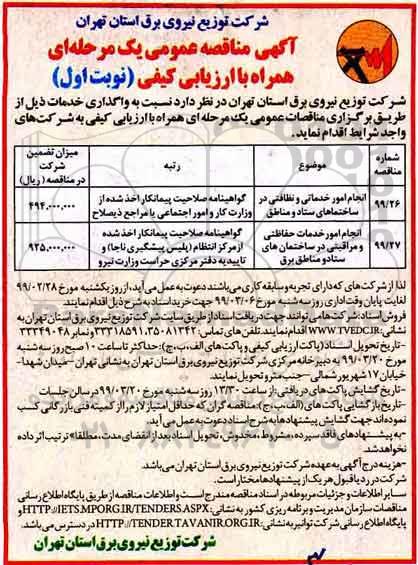 شرکت توزیع نیروی برق استان تهران
آگهی مناقصه عمومی یک مرحله‌ای
همراه با ارزیابی کیفی (نوبت اول)
شرکت توزیع نیروی برق استان تهران در نظر دارد نسبت به واگذاری خدمات ذیل از
طریق برگزاری مناقصات عمومی یک مرحله ای همراه با ارزیابی کیفی به شرکت‌های
واجد شرایط اقدام نماید.
شماره مناقصه
موضوع
رتبه
میزان تضمین شرکت در مناقصه (ریال)
۹۹/۲۶
انجام امور خدماتی و نظافتی در
ساختمانهای ستاد و مناطق
گواهینامه صلاحیت پیمانکار اخذ شده از
وزارت کار و امور اجتماعی یا مراجع ذیصلاح
۴۹۴,۰۰۰,۰۰۰
۹۹/۲۷
انجام امور خدمات حفاظتی
و مراقبتی در ساختمان های
ستاد و مناطق برق
گواهینامه صلاحیت پیمانکار اخذ شده
از مرکز انتظام (پلیس پیشگیری ناجا) و
تاییدیه دفتر مرکزی حراست وزارت نیرو
۹۲۵,۰۰۰,۰۰۰
لذا از شرکت‌های که دارای تجربه و سابقه کاری می‌باشند دعوت به عمل می‌آید، از روز یکشنبه مورخ ۹۹/۰۲/۲۸
لغایت پایان وقت اداری روز سه شنبه مورخ ۹۹/۰۳/۰۶ جهت خرید اسناد به شرح ذیل اقدام نمایند.
فروش اسناد: شرکت‌ها می توانند جهت دریافت اسناد از طریق سایت شرکت توزیع نیروی برق استان تهران به
نشانی: WWW.TVEDC.IR اقدام نمایند. تلفن های تماس: ۳۵۰۸۱۳۴۲، ۳۳۳۱۸۵۹۱ و نمابر ۳۳۳۴۹۰۴۸
-تاریخ تحویل اسناد: (پاکت ارزیابی کیفی و پاکت‌های الف، ب، ج): حداکثر تا ساعت ۱۰ صبح روز سه شنبه
مورخ ۹۹/۰۳/۲۰ به دبیرخانه مرکزی شرکت توزیع نیروی برق استان تهران به نشانی تهران -میدان شهدا-
خیابان ۱۷ شهریور شمالی -جنب مترو تحویل نمایند.
-تاریخ گشایش پاکت های دریافتی: از ساعت ۱۳/۳۰ روز سه شنبه مورخ ۹۹/۰۳/۲۰ در سالن جلسات
-تاریخ بازگشایی پاکت های (الف، ب، ج): مناقصه گران که حداقل امتیاز لازم را از کمیته فنی بازرگانی کسب
نموده اند جهت گشایش پیشنهادها به شرح اسناد دعوت به عمل می آید.
-به پیشنهادهای فاقد سپرده، مشروط، مخدوش، تحویل اسناد بعد از انقضای مدت، مطلقا" ترتیب اثر داده
نخواهد شد.
-هزینه درج آگهی به عهده شرکت توزیع نیروی برق استان تهران می‌باشد.
شرکت در رد یا قبول هر یک از پیشنهادها مختار است.
سایر اطلاعات و جزئیات مربوطه در اسناد مناقصه مندرج است و اطلاعات مناقصه از طریق پایگاه اطلاع رسانی
مناقصات سازمان مدیریت و برنامه ریزی کشور به نشانی: HTTP://IETS.MPORG.IR/TENDERS.ASPX و
پایگاه اطلاع رسانی شرکت توانیر به نشانی: HTTP://TENDER.TAVANIR.ORG.IR در دسترس می باشد.
شرکت توزیع نیروی برق استان تهران